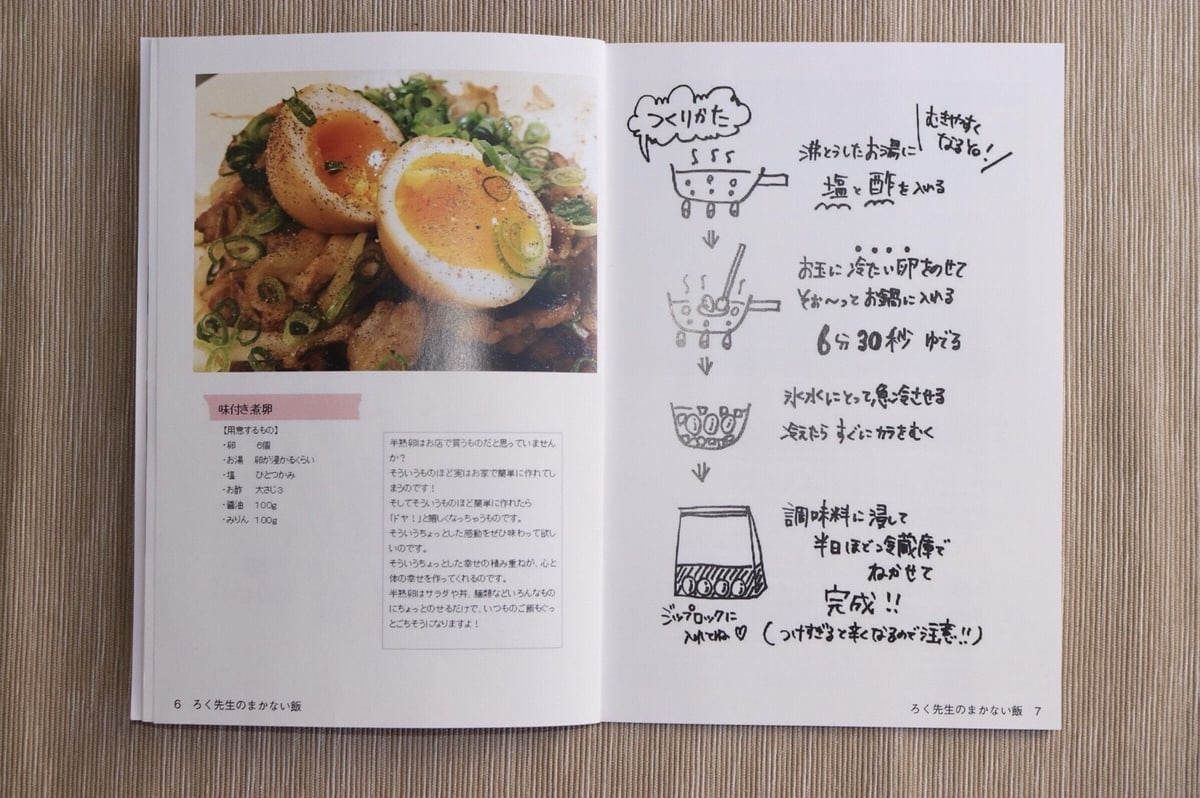 味付き煮卵
【用意するもの】
・卵　6個
・お湯　卵が浸かるくらい
・塩　ひとつかみ
・お酢　大さじ3
・醤油　100g
・みりん　100g
半熟卵はお店で買うものだと思っていません
か？
そういうものほど実はお家で簡単に作れてし
まうのです！
そしてそういうものほど簡単に作れたら
「ドヤ！」と嬉しくなっちゃうものです。
そういうちょっとした感動をぜひ味わって欲し
いのです。
そういうちょっとした幸せの積み重ねが、心と
体の幸せを作ってくれるのです。
半熟卵はサラダや丼、麺類などいろんなもの
にちょっとのせるだけで、いつものご飯もぐっ
とごちそうになりますよ！
6　ろく先生のまかない飯
つくりかた
沸とうしたお湯に
塩と酢を入れる
むきやすく
なるよ！
お玉に冷たい卵をのせて
そぉ〜っとお鍋に入れる
6分30秒 ゆでる
氷水にとって急冷させる
冷えたらすぐにカラをむく
調味料に浸して
半日ほど冷蔵庫で
ねかせて
完成!!
(つけすぎると辛くなるので注意!!)
ジップロックに
入れてね♡
ろく先生のまかない飯　7